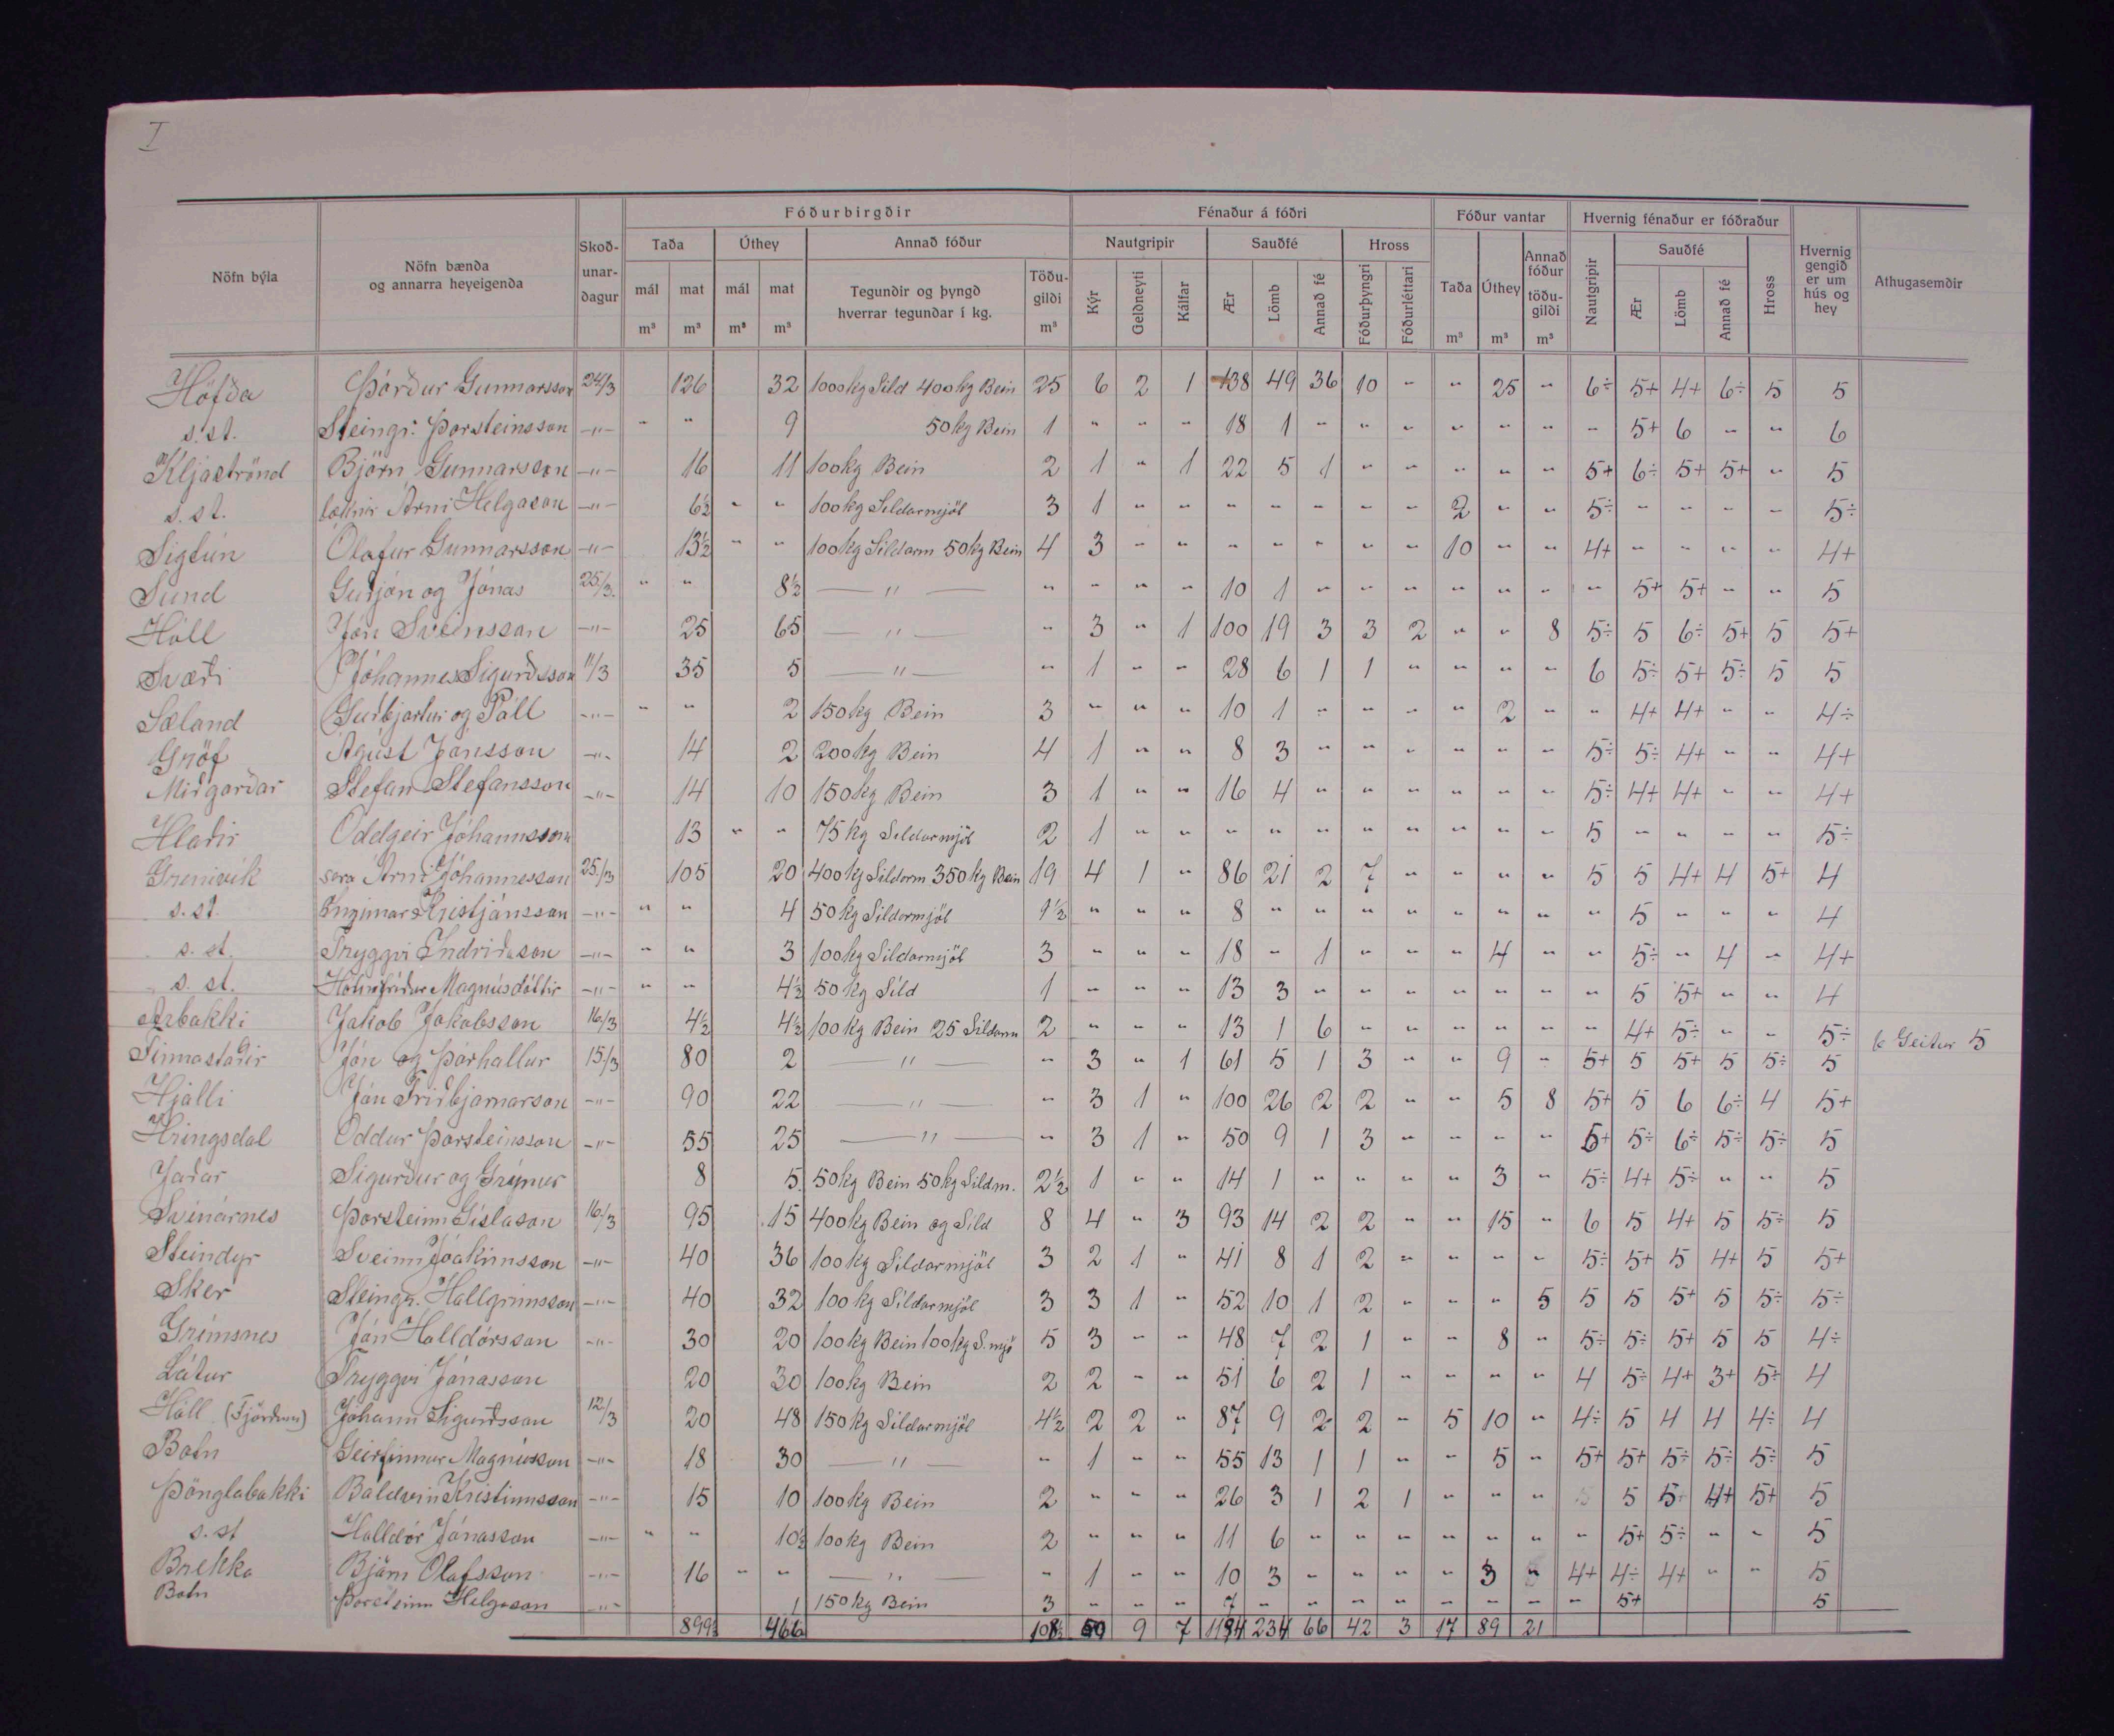 I
Nöfn býla | Nöfn bænda og annarra heyeigenda | Skoð-unar-dagur | Fóðurbirgðir | Fénaður á fóðri | Fóður vantar | Hvernig fénaður er fóðraður | Hvernig gengið er um hús og hey | Athugasemdir
Taða | Úthey | Annað fóður | Nautgripir | Sauðfé | Hross | Taða | Úthey | Annað fóður töðu-gildi | Nautgripir | Sauðfé | Hross
mál | mat | mál | mat | Tegundir og þyngd hverrar tegundar í kg. | Töðu-gildi | Kýr | Geldneyti | Kálfar | Ær | Lömb | Annað fé | Fóðurþyngri | Fóðurléttari | Ær | Lömb | Annað fé
m³ | m³ | m³ | m³ | m³ | m³ | m³ | m³
Höfða | Þórður Gunnarsson | 24/3 | 126 | 32 | 1000kg Síld 400kg Bein | 25 | 6 | 2 | 1 | 138 | 49 | 36 | 10 | " | " | 25 | " | 6÷ | 5+ | 4+ | 6÷ | 5 | 5
s.st. | Steingr. Þorsteinsson | -"- | " | " | 9 | 50kg Bein | 1 | " | " | " | 18 | 1 | " | " | " | " | " | " | " | 5+ | 6 | " | " | 6
Kljáströnd | Björn Gunnarsson | -"- | 16 | 11 | 100kg Bein | 2 | 1 | " | 1 | 22 | 5 | 1 | " | " | " | " | " | 5+ | 6÷ | 5+ | 5+ | " | 5
s.st. | Árni Helgason | -"- | 6½ | " | " | 100kg Síldarmjöl | 3 | 1 | " | " | " | " | " | " | " | 2 | " | " | 5÷ | " | " | " | " | 5÷
Sigtún | Ólafur Gunnarsson | -"- | 13½ | " | " | 100kg Síldarm 50kg Bein | 4 | 3 | " | " | " | " | " | " | " | 10 | " | " | 4+ | " | " | " | " | 4+
Sund | Guðjón og Jónas | 25/3. | " | " | 8½ | " | " | " | " | " | 10 | 1 | " | " | " | " | " | " | " | 5+ | 5+ | " | " | 5
Hóll | Jón Sveinsson | -"- | 25 | 65 | " | " | 3 | " | 1 | 100 | 19 | 3 | 3 | 2 | " | " | 8 | 5÷ | 5 | 6÷ | 5+ | 5 | 5+
Svæði | Jóhannes Sigurðsson | 11/3 | 35 | 5 | " | " | 1 | " | " | 28 | 6 | 1 | 1 | " | " | " | " | 6 | 5÷ | 5+ | 5÷ | 5 | 5
Sæland | Guðbjartur og Páll | -"- | " | " | 2 | 150kg Bein | 3 | " | " | " | 10 | 1 | " | " | " | " | 2 | " | " | 4+ | 4+ | " | " | 4÷
Gröf | Ágúst Jónsson | -"- | 14 | 2 | 200kg Bein | 4 | 1 | " | " | 8 | 3 | " | " | " | " | " | " | 5÷ | 5÷ | 4+ | " | " | 4+
Miðgarðar | Stefán Stefánsson | -"- | 14 | 10 | 150kg Bein | 3 | 1 | " | " | 16 | 4 | " | " | " | " | " | " | 5÷ | 4+ | 4+ | " | " | 4+
Hlaðir | Oddgeir Jóhannsson | 13 | " | " | 75 kg Síldarmjöl | 2 | 1 | " | " | " | " | " | " | " | " | " | " | 5 | " | " | " | " | 5÷
Grenivík | séra Árni Jóhannesson | 25/3 | 105 | 20 | 400kg Síldarm 350kg Bein | 19 | 4 | 1 | " | 86 | 21 | 2 | 7 | " | " | " | " | 5 | 5 | 4+ | 4 | 5+ | 4
s.st. | Ingimar Kristjánsson | -"- | " | " | 4 | 50kg Síldarmjöl | 1½ | " | " | " | 8 | " | " | " | " | " | " | " | " | 5 | " | " | " | 4
s.st. | Tryggvi Indriðason | -"- | " | " | 3 | 100kg Síldarmjöl | 3 | " | " | " | 18 | " | 1 | " | " | " | 4 | " | " | 5÷ | " | 4 | " | 4+
s.st. | Hólmfríður Magnúsdóttir | -"- | " | " | 4½ | 50kg Síld | 1 | " | " | " | 13 | 3 | " | " | " | " | " | " | " | 5 | 5+ | " | " | 4
Árbakki | Jakob Jakobsson | 16/3 | 4½ | 4½ | 100kg Bein 25 Síldarm | 2 | " | " | " | 13 | 1 | 6 | " | " | " | " | " | " | 4+ | 5÷ | " | " | 5÷ | 6 Geitur 5
Finnastaðir | Jón og Þórhallur | 15/3 | 80 | 2 | " | " | 3 | " | 1 | 61 | 5 | 1 | 3 | " | " | 9 | " | 5+ | 5 | 5+ | 5 | 5÷ | 5
Hjalli | Jón Friðbjarnarson | -"- | 90 | 22 | " | " | 3 | 1 | " | 100 | 26 | 2 | 2 | " | " | 5 | 8 | 5+ | 5 | 6 | 6÷ | 4 | 5+
Hringsdal | Oddur Þorsteinsson | -"- | 55 | 25 | " | " | 3 | 1 | " | 50 | 9 | 1 | 3 | " | " | " | " | 5+ | 5÷ | 6÷ | 5÷ | 5÷ | 5
Jaðar | Sigurður og Grímur | 8 | 5. | 50kg Bein 50kg Síldm. | 2½ | 1 | " | " | 14 | 1 | " | " | " | " | 3 | " | 5÷ | 4+ | 5÷ | " | " | 5
Svínárnes | Þorsteinn Gíslason | 16/3 | 95 | 15 | 400kg Bein og Síld | 8 | 4 | " | 3 | 93 | 14 | 2 | 2 | " | " | 15 | " | 6 | 5 | 4+ | 5 | 5÷ | 5
Steindyr | Sveinn Jóakimsson | -"- | 40 | 36 | 100kg Síldarmjöl | 3 | 2 | 1 | " | 41 | 8 | 1 | 2 | " | " | " | " | 5÷ | 5+ | 5 | 4+ | 5 | 5+
Sker | Steingr. Hallgrímsson | -"- | 40 | 32 | 100kg Síldarmjöl | 3 | 3 | 1 | " | 52 | 10 | 1 | 2 | " | " | " | 5 | 5 | 5 | 5+ | 5 | 5÷ | 5÷
Grímsnes | Jón Halldórsson | -"- | 30 | 20 | 100kg Bein 100kg S.mjö | 5 | 3 | " | " | 48 | 7 | 2 | 1 | " | " | 8 | " | 5÷ | 5÷ | 5+ | 5 | 5 | 4÷
Látur | Tryggvi Jónasson | 20 | 30 | 100kg Bein | 2 | 2 | " | " | 51 | 6 | 2 | 1 | " | " | " | " | 4 | 5÷ | 4+ | 3+ | 5÷ | 4
Hóll (Fjörðum) | Jóhann Sigurðsson | 12/3 | 20 | 48 | 150kg Síldarmjöl | 4½ | 2 | 2 | " | 87 | 9 | 2 | 2 | " | 5 | 10 | " | 4÷ | 5 | 4 | 4 | 4÷ | 4
Botn | Geirfinnur Magnússon | -"- | 18 | 30 | " | " | 1 | " | " | 55 | 13 | 1 | 1 | " | " | 5 | " | 5+ | 5+ | 5÷ | 5÷ | 5÷ | 5
Þönglabakki | Baldvin Kristinnsson | -"- | 15 | 10 | 100kg Bein | 2 | " | " | " | 26 | 3 | 1 | 2 | 1 | " | " | " | 5 | 5+ | 4+ | 5+ | 5
s.st | Halldór Jónasson | -"- | " | " | 10½ | 100kg Bein | 2 | " | " | " | 11 | 6 | " | " | " | " | " | " | " | 5+ | 5÷ | " | " | 5
Brekka | Björn Ólafsson | -"- | 16 | " | " | " | " | 1 | " | " | 10 | 3 | " | " | " | " | 3 | " | 4+ | 4÷ | 4+ | " | " | 5
Botn | Þorsteinn Helgason | -"- | 1 | 150kg Bein | 3 | " | " | " | 7 | " | " | " | " | " | " | " | " | 5+ | 5
899½ | 466 | 108½ | 50 | 9 | 7 | 1194 | 234 | 66 | 42 | 3 | 17 | 89 | 21